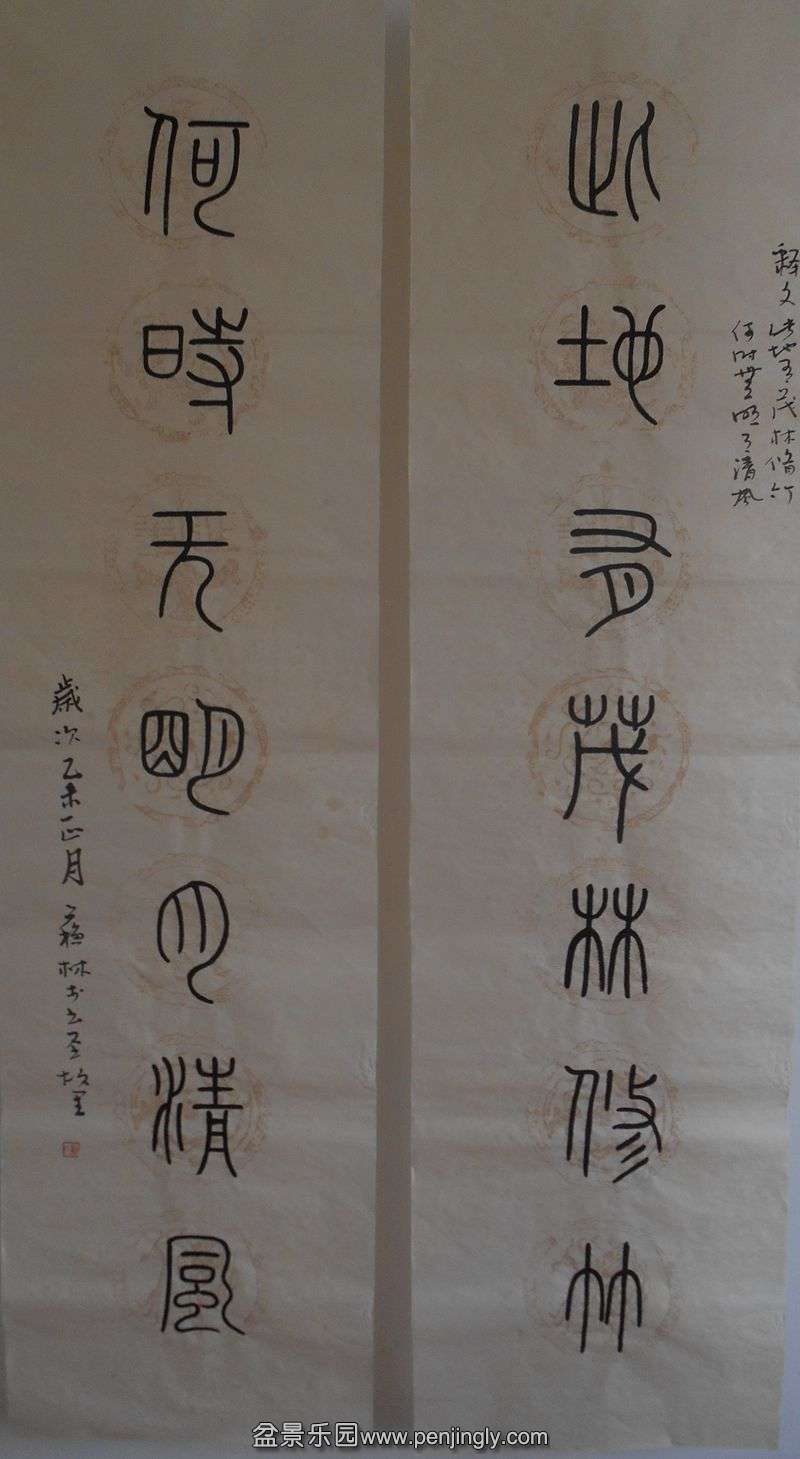 此地有茂林修竹
释文此地有茂林修竹
何时无明月清风
何時无朙月清風
歲次乙未正月蘇林书於
盆景乐园www.penjingly.com